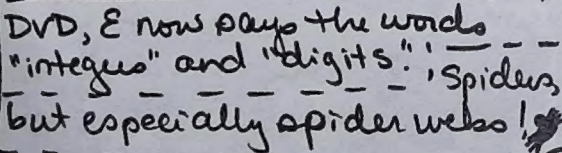 DVD, E now says the words
"integers" and "digits". Spiders,
but especially spider webs!